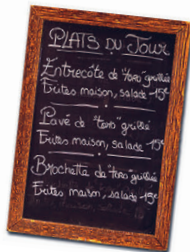 PLATS DU JOUR
Entrecôte de "toro" grillée
Frites maison, salade - 15€
Pavé de "toro" grillé
Frites maison, salade - 15€
Brochette de "toro" grillée
Frites maison, salade - 15€